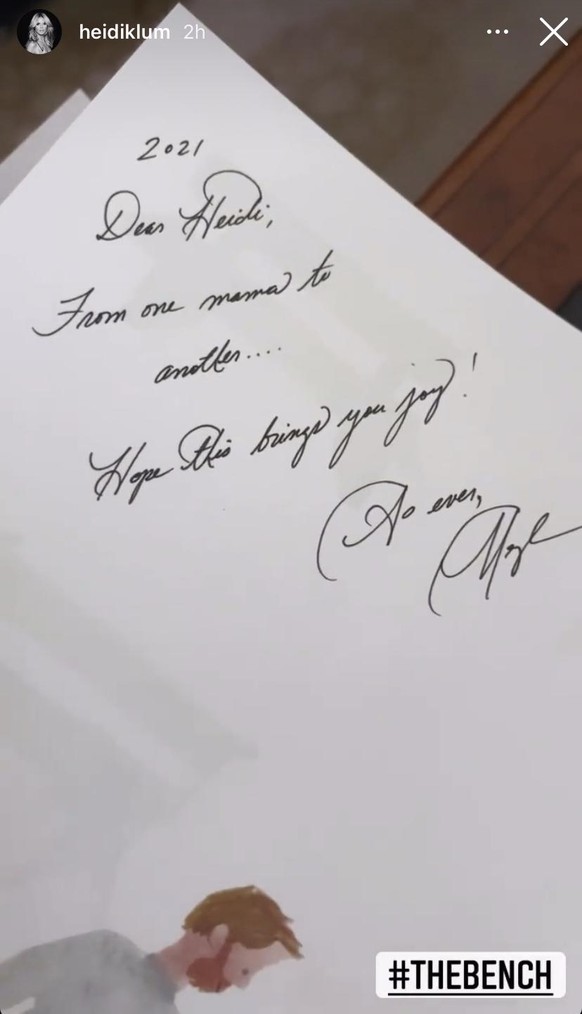 heidiklum 2h
2021
Dear Heidi,
From one mama to
another....
Hope this brings you joy!
As ever,
#THEBENCH